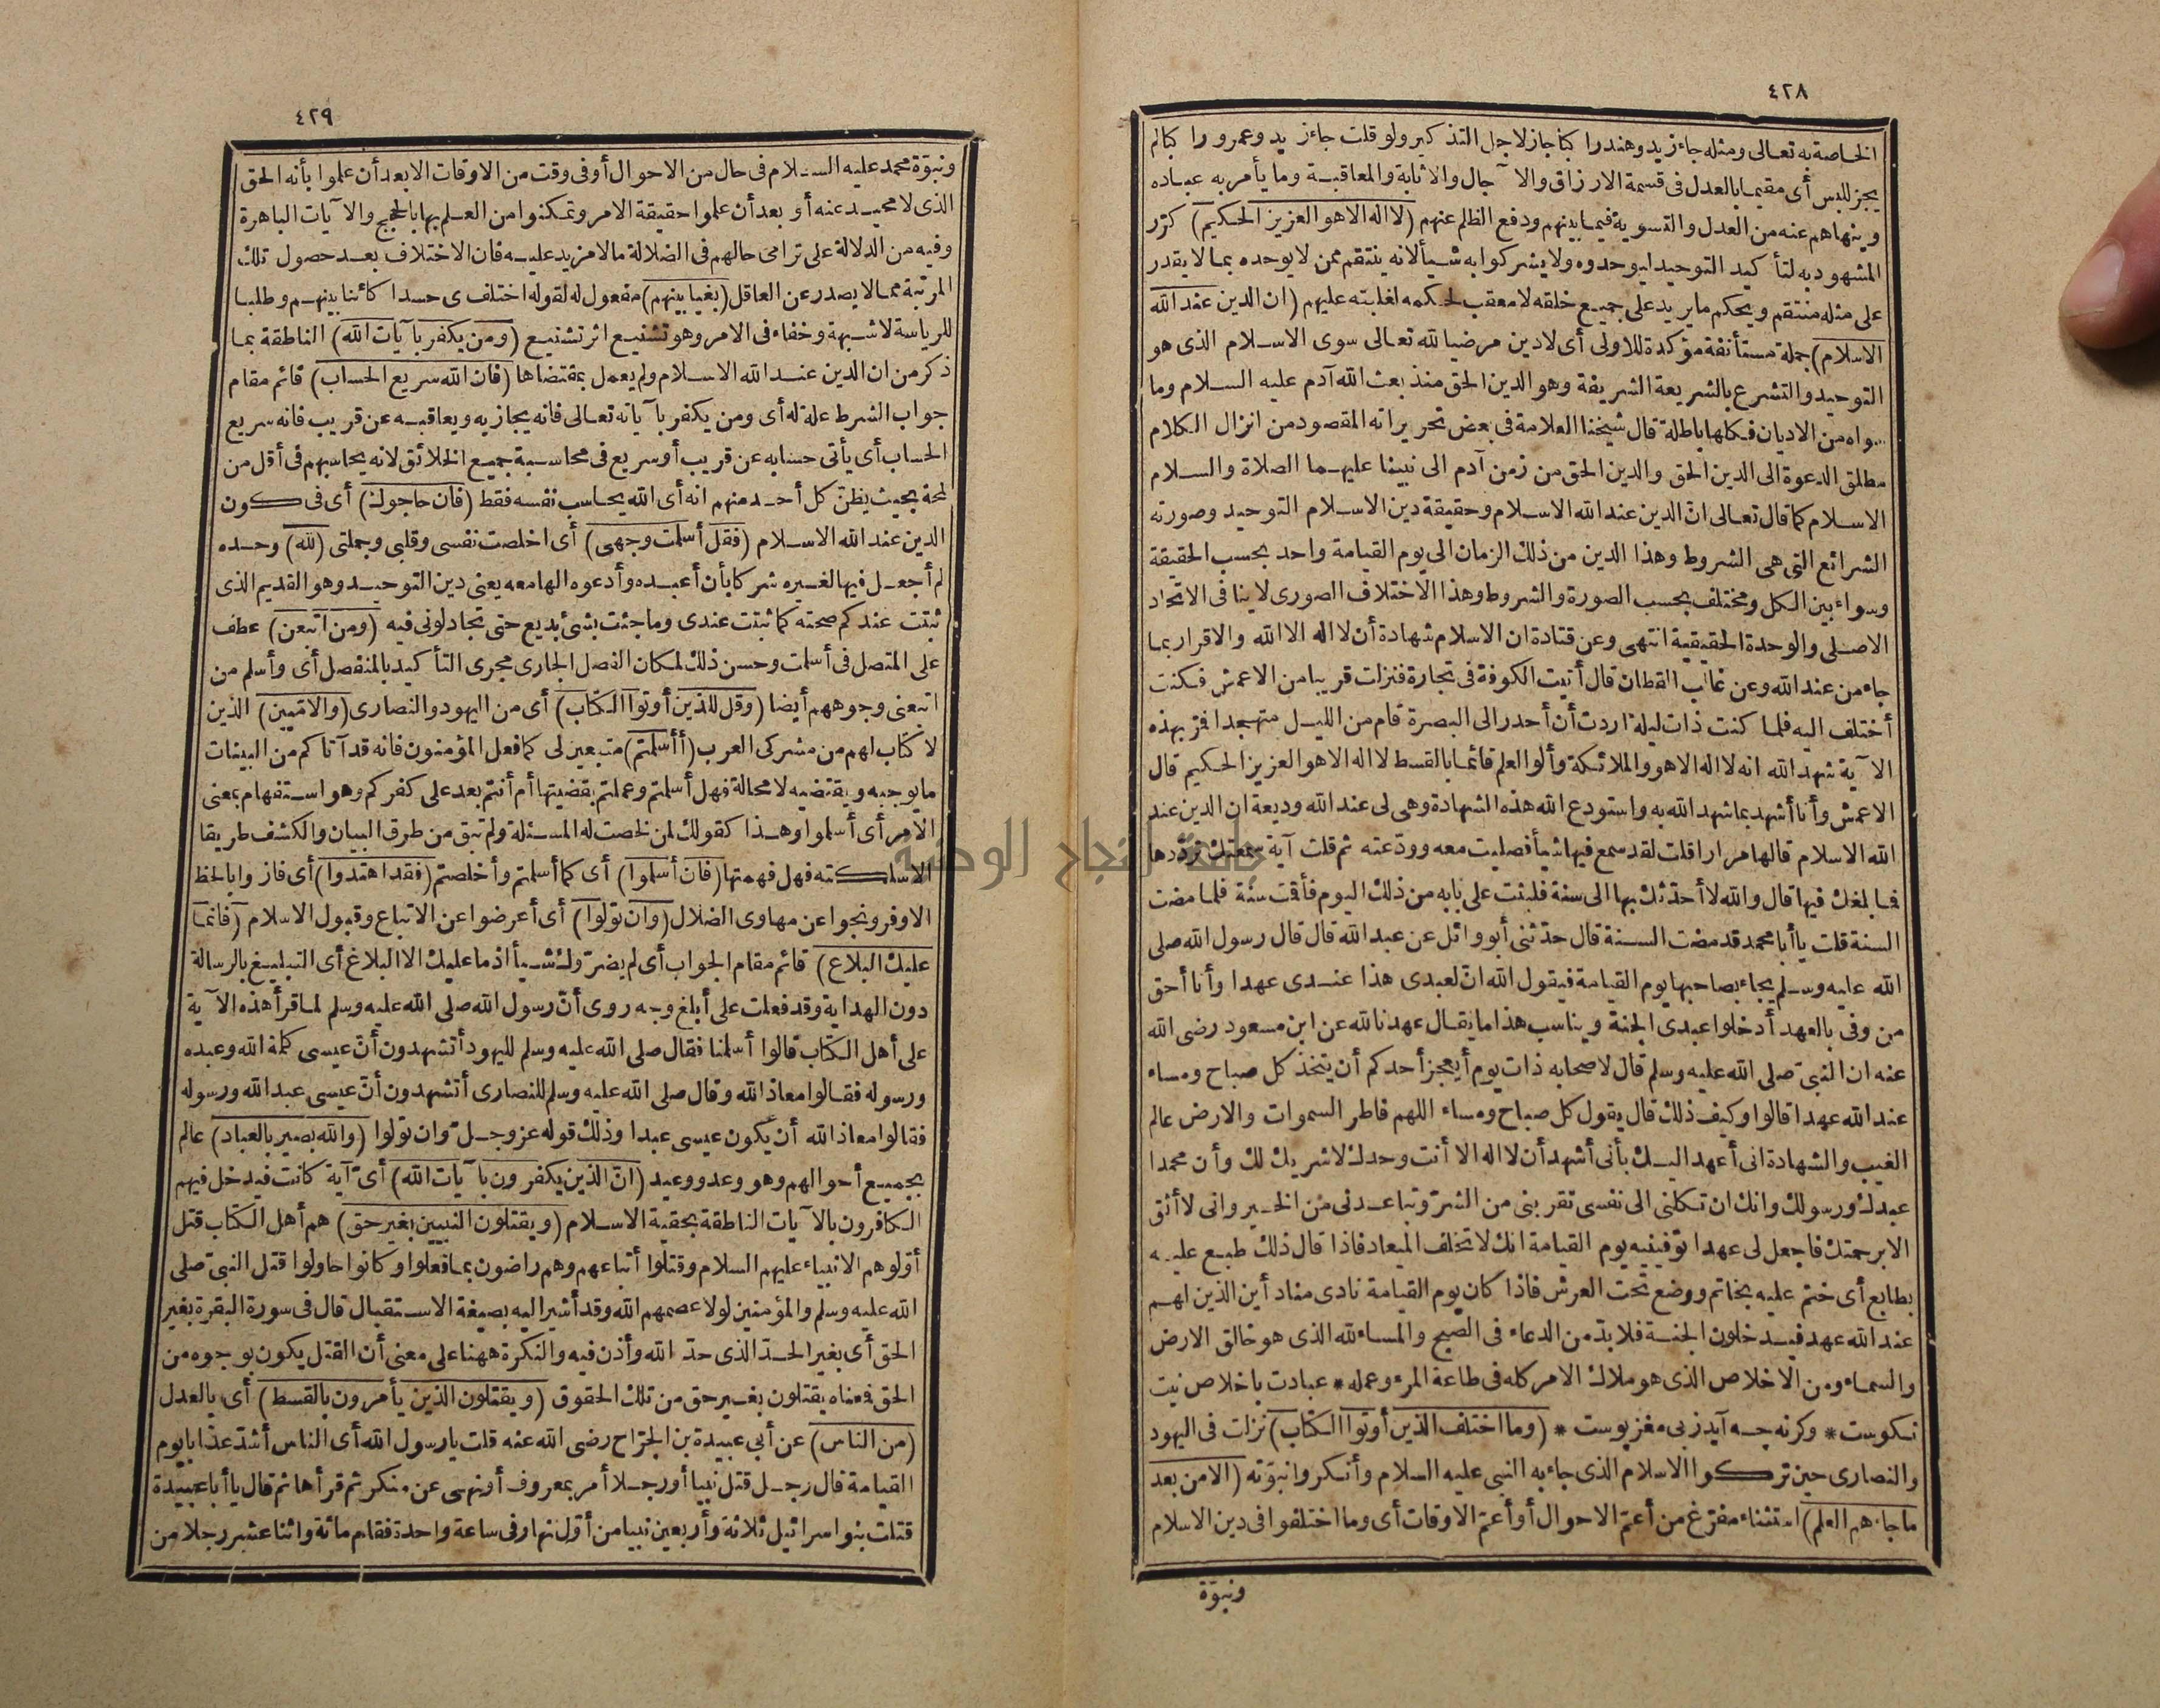 ٤٢٨
الخاصة به تعالى ومثله جاء زيد وهند راكبا جاز لاجل التذكير ولو قلت جاء زيد وعمرو راكبا لم
يجز للبس أى مقيما بالعدل فى قسمة الارزاق والآجال والاثابة والمعاقبة وما يأمر به عباده
وينهاهم عنه من العدل والتسوية فيما بينهم ودفع الظلم عنهم (لا اله الا هو العزيز الحكيم) كرّر
المشهود به لتأكيد التوحيد ليوحدوه ولا يشركوا به شيأ لانه ينتقم ممن لا يوحده بما لا يقدر
على مثله منتقم ويحكم ما يريد على جميع خلقه لا معقب لحكمه لغلبته عليهم (ان الدين عند الله
الاسلام) جملة مستأنفة مؤكدة للاولى أى لا دين مرضيا لله تعالى سوى الاسلام الذى هو
التوحيد والتشرع بالشريعة الشريفة وهو الدين الحق منذ بعث الله آدم عليه السلام وما
سواه من الاديان فكلها باطلة قال شيخنا العلامة فى بعض تحريراته المقصود من انزال الكلام
مطلق الدعوة الى الدين الحق والدين الحق من زمن آدم الى نبينا عليهما الصلاة والسلام
الاسلام كما قال تعالى انّ الدين عند الله الاسلام وحقيقة دين الاسلام التوحيد وصورته
الشرائع التى هى الشروط وهذا الدين من ذلك الزمان الى يوم القيامة واحد بحسب الحقيقة
وسواء بين الكل ومختلف بحسب الصورة والشروط وهذا الاختلاف الصورى لا ينافى الاتحاد
الاصلى والوحدة الحقيقية انتهى وعن قتادة ان الاسلام شهادة أن لا اله الا الله والاقرار بما
جاء من عند الله وعن غالب القطان قال أتيت الكوفة فى تجارة فنزلت قريبا من الاعمش فكنت
أختلف اليه فلما كنت ذات ليلة اردت أن أحدر الى البصرة قام من الليل متهجدا فمرّ بهذه
الآية شهد الله انه لا اله الا هو والملائكة وأولو العلم قائما بالقسط لا اله الا هو العزيز الحكيم قال
الاعمش وأنا أشهد بما شهد الله به واستودع الله هذه الشهادة وهى لى عند الله وديعة ان الدين عند
الله الاسلام قالها مرارا قلت لقد سمع فيها شيأ فصليت معه وودّعته ثم قلت آية سمعتك تردّدها
فما بلغك فيها قال والله لا أحدّثك بها الى سنة فلبثت على بابه من ذلك اليوم فأقمت سنة فلما مضت
السنة قلت يا أبا محمد قد مضت السنة قال حدّثنى أبو وائل عن عبد الله قال قال رسول الله صلى
الله عليه وسلم يجاء بصاحبها يوم القيامة فيقول الله انّ لعبدى هذا عندى عهدا وأنا أحق
من وفى بالعهد أدخلوا عبدى الجنة ويناسب هذا ما يقال عهدنا لله عن ابن مسعود رضى الله
عنه ان النبىّ صلى الله عليه وسلم قال لاصحابه ذات يوم أيعجز أحدكم أن يتخذ كل صباح ومساء
عند الله عهدا قالوا وكيف ذلك قال يقول كل صباح ومساء اللهم فاطر السموات والارض عالم
الغيب والشهادة انى أعهد اليك بأنى أشهد أن لا اله الا أنت وحدك لا شريك لك وأن محمدا
عبدك ورسولك وانك ان تكلنى الى نفسى تقربنى من الشرّ وتباعدنى من الخير وانى لا أثق
الا برحمتك فاجعل لى عهدا توّفينيه يوم القيامة انك لا تخلف الميعاد فاذا قال ذلك طبع عليه
بطابع أى ختم عليه بخاتم ووضع تحت العرش فاذا كان يوم القيامة نادى مناد أين الذين لهم
عند الله عهد فيدخلون الجنة فلا بدّ من الدعاء فى الصبح والمساء لله الذى هو خالق الارض
والسماء ومن الاخلاص الذى هو ملاك الامر كله فى طاعة المرء وعمله * عبادت باخلاص نيت
نكوست * وكرنه چه آيد زبى مغز پوست * (وما اختلف الذين أوتوا الكتاب) نزلت فى اليهود
والنصارى حين تركوا الاسلام الذى جاء به النبى عليه السلام وأنكروا نبوّته (الا من بعد
ما جاءهم العلم) استثناء مفرّغ من أعمّ الاحوال أو أعمّ الاوقات أى وما اختلفوا فى دين الاسلام
ونبوّة
٤٢٩
ونبوّة محمد عليه السلام فى حال من الاحوال أو فى وقت من الاوقات الا بعد أن علموا بأنه الحق
الذى لا محيد عنه أو بعد أن علموا حقيقة الامر وتمكنوا من العلم بها بالحجج والآيات الباهرة
وفيه من الدلالة على ترامى حالهم فى الضلالة ما لا مزيد عليه فان الاختلاف بعد حصول تلك
المرتبة مما لا يصدر عن العاقل (بغيا بينهم) مفعول له لقوله اختلف ى حسدا كائنا بينهم وطلبا
للرياسة لا شبهة وخفاء فى الامر وهو تشنيع اثر تشنيع (ومن يكفر بآيات الله) الناطقة بما
ذكر من ان الدين عند الله الاسلام ولم يعمل بمقتضاها (فان الله سريع الحساب) قائم مقام
جواب الشرط علة له أى ومن يكفر بآياته تعالى فانه يجازيه ويعاقبه عن قريب فانه سريع
الحساب أى يأتى حسابه عن قريب أو سريع فى محاسبة جميع الخلائق لانه يحاسبهم فى أقل من
لمحة بحيث يظنّ كل أحد منهم انه أى الله يحاسب نفسه فقط (فان حاجوك) أى فى كون
الدين عند الله الاسلام (فقل أسلمت وجهى) أى اخلصت نفسى وقلبى وجملتى (لله) وحده
لم أجعل فيها لغيره شركا بأن أعبده وأدعوه الها معه يعنى دين التوحيد وهو القديم الذى
ثبتت عندكم صحته كما ثبتت عندى وما جئت بشئ بديع حتى تجادلونى فيه (ومن اتبعن) عطف
على المتصل فى أسلمت وحسن ذلك لمكان الفصل الجارى مجرى التأكيد بالمنفصل أى وأسلم من
اتبعنى وجوههم أيضا (وقل للذين أوتوا الكتاب) أى من اليهود والنصارى (والاميين) الذين
لا كتاب لهم من مشركى العرب (أأسلمتم) متبعين لى كما فعل المؤمنون فانه قد آتاكم من البينات
ما يوجبه ويقتضيه لا محالة فهل أسلمتم وعملتم بقضيتها أم أنتم بعد على كفركم وهو استفهام بمعنى
الامر أى أسلموا وهذا كقولك لمن لخصت له المسئلة ولم تبق من طرق البيان والكشف طريقا
الا سلكته فهل فهمتها (فان أسلموا) أى كما أسلمتم وأخلصتم (فقد اهتدوا) أى فازوا بالحظ
الاوفر ونجوا عن مهاوى الضلال (وان تولوا) أى أعرضوا عن الاتباع وقبول الاسلام (فانما
عليك البلاغ) قائم مقام الجواب أى لم يضرّوك شيأ اذ ما عليك الا البلاغ أى التبليغ بالرسالة
دون الهداية وقد فعلت على أبلغ وجه روى أنّ رسول الله صلى الله عليه وسلم لما قرأ هذه الآية
على أهل الكتاب قالوا أسلمنا فقال صلى الله عليه وسلم لليهود أتشهدون أنّ عيسى كلمة الله وعبده
ورسوله فقالوا معاذ الله وقال صلى الله عليه وسلم للنصارى أتشهدون أنّ عيسى عبد الله ورسوله
فقالوا معاذ الله أن يكون عيسى عبدا وذلك قوله عز وجلّ وان تولوا (والله بصير بالعباد) عالم
بجميع أحوالهم وهو وعد ووعيد (انّ الذين يكفرون بآيات الله) أىّ آية كانت فيدخل فيهم
الكافرون بالآيات الناطقة بحقية الاسلام (ويقتلون النبيين بغير حق) هم أهل الكتاب قتل
أوّلوهم الانبياء عليهم السلام وقتلوا أتباعهم وهم راضون بما فعلوا وكانوا حاولوا قتل النبىّ صلى
الله عليه وسلم والمؤمنين لولا عصمهم الله وقد أشير اليه بصيغة الاستقبال قال فى سورة البقرة بغير
الحق أى بغير الحدّ الذى حدّ الله وأذن فيه والنكرة ههنا على معنى أن القتل يكون بوجوه من
الحق فمعناه يقتلون بغير حق من تلك الحقوق (ويقتلون الذين يأمرون بالقسط) أى بالعدل
(من الناس) عن أبى عبيدة بن الجرّاح رضى الله عنه قلت يا رسول الله أى الناس أشدّ عذابا يوم
القيامة قال رجل قتل نبيا أو رجلا أمر بمعروف أو نهى عن منكر ثم قرأها ثم قال يا أبا عبيدة
قتلت بنو اسرائيل ثلاثة وأربعين نبيا من أوّل نهار فى ساعة واحدة فقام مائة واثنا عشر رجلا من